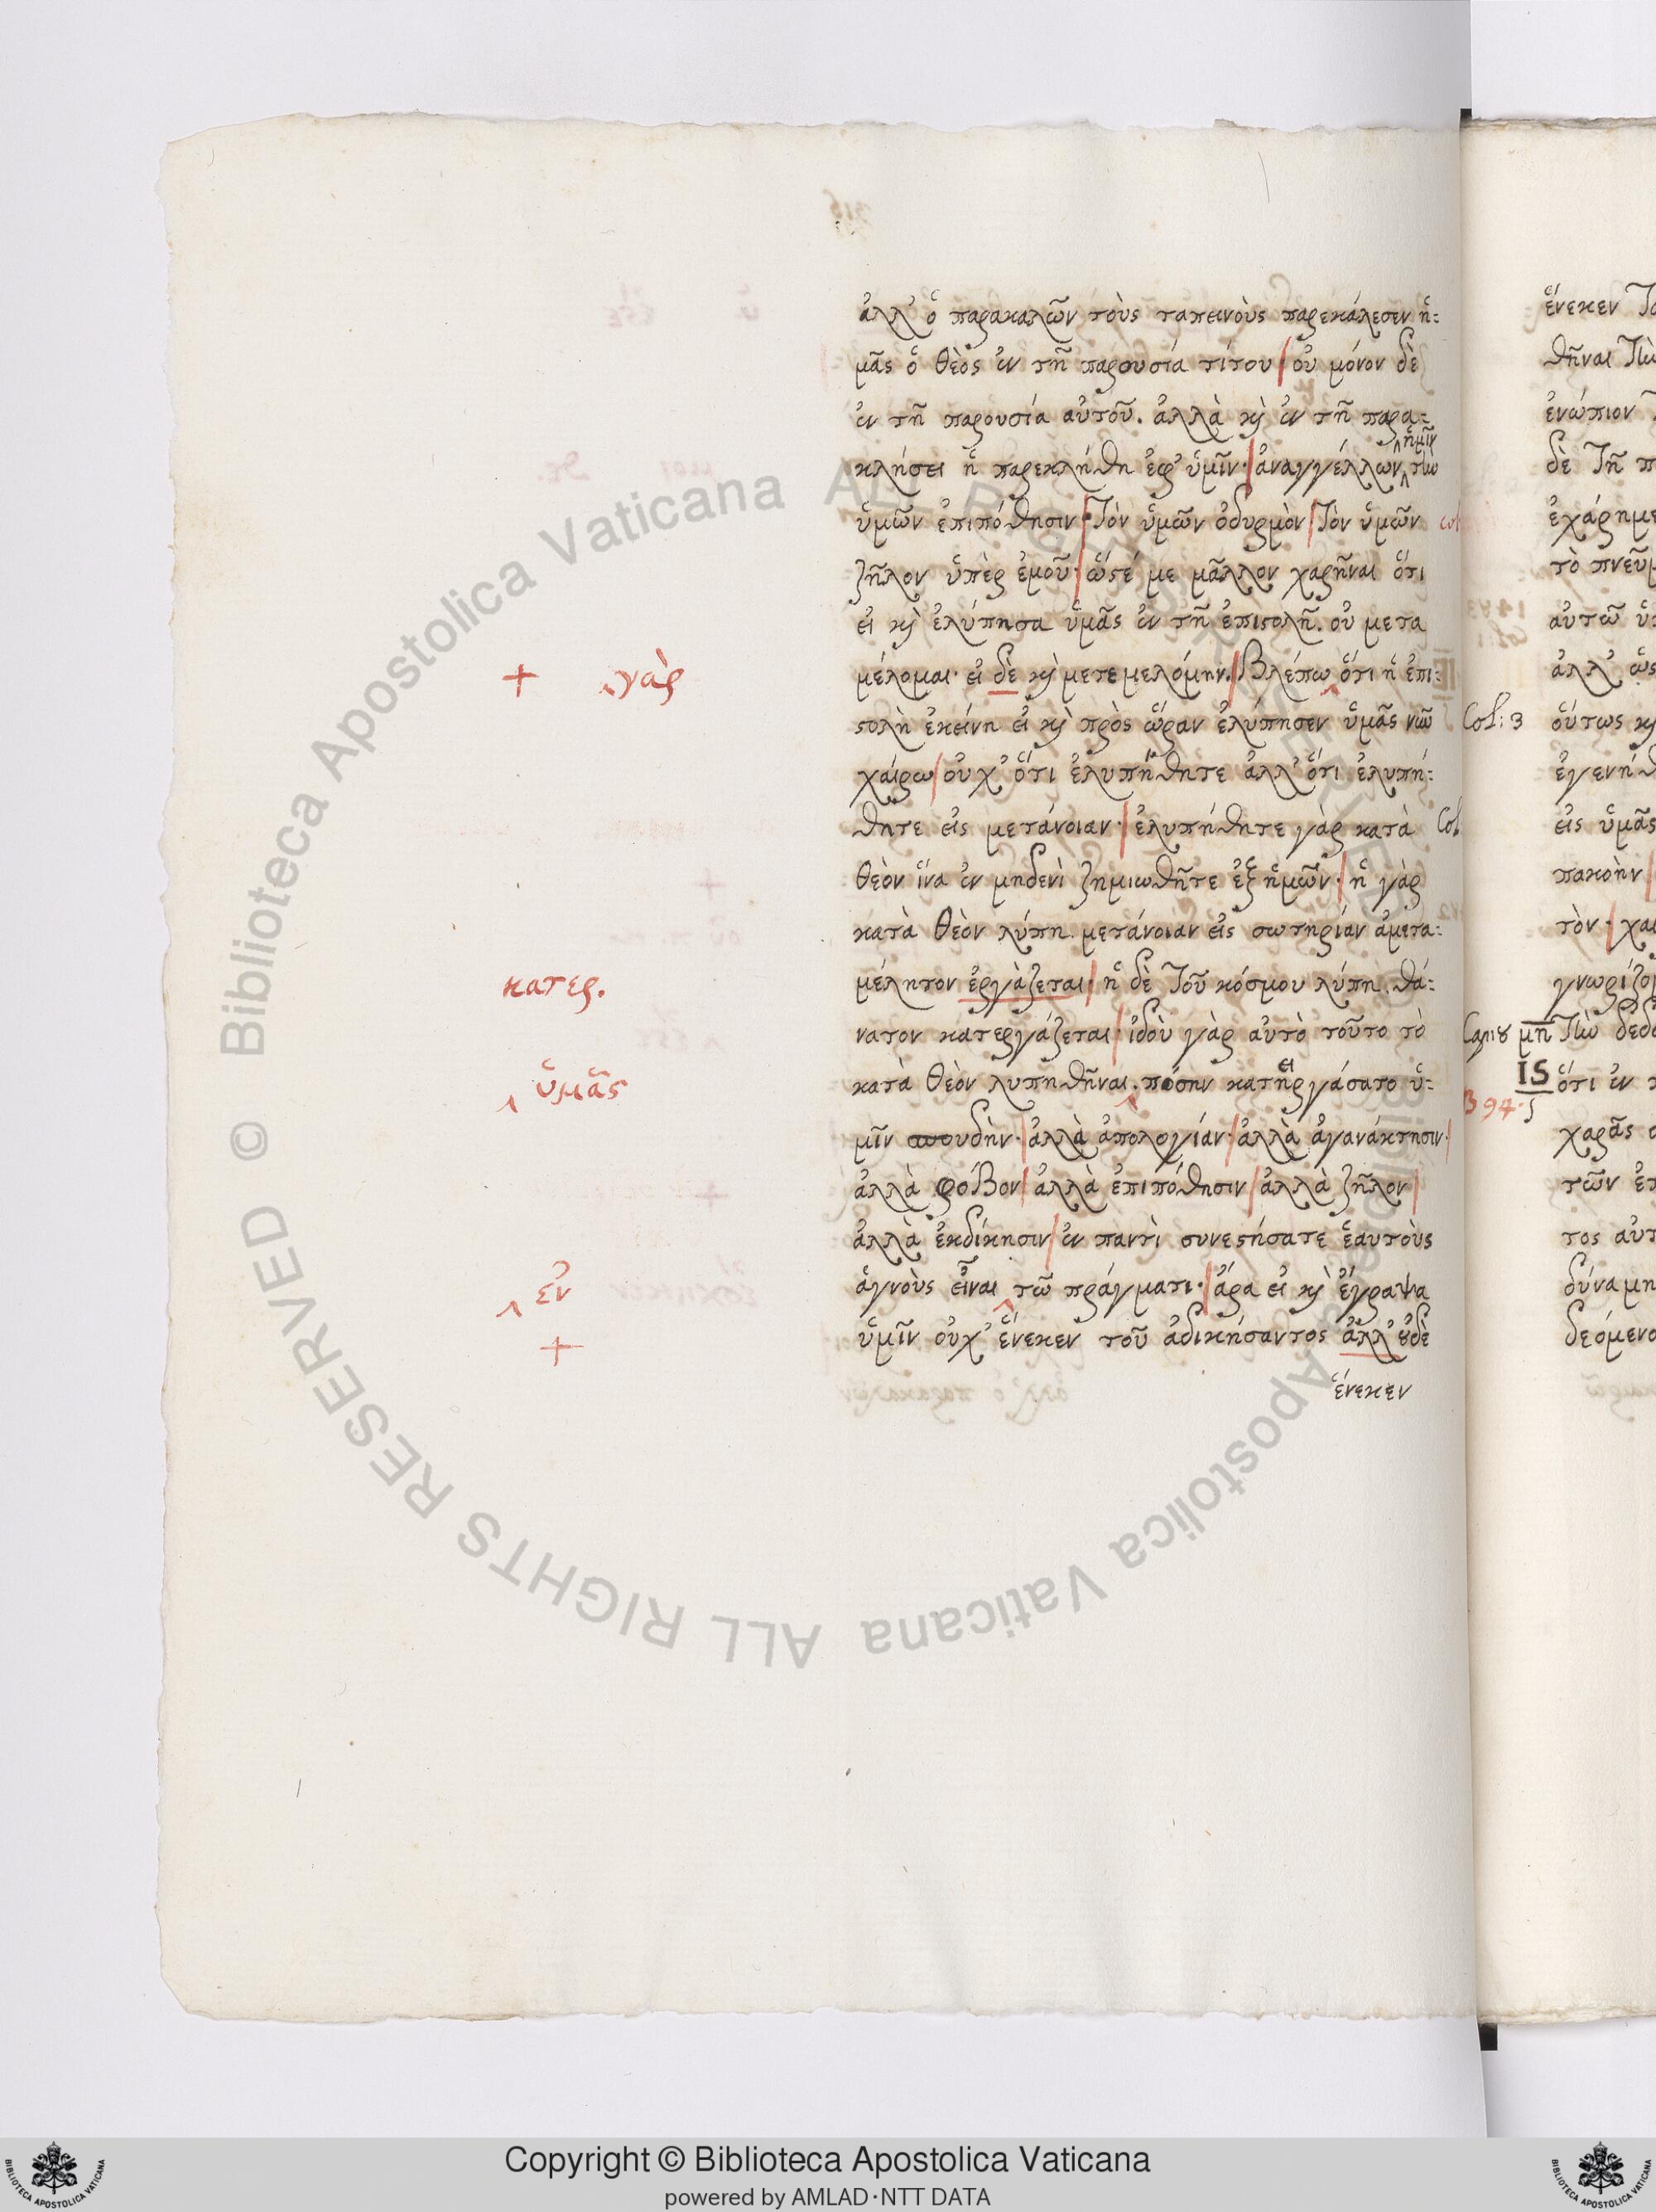 ἀλλ' ὁ παρακαλῶν τοὺς ταπεινοὺς παρεκάλεσεν ἡ:
μᾶς ὁ θεὸς ἐν τῇ παρουσία τίτου· οὐ μόνον δὲ
ἐν τῇ παρουσία αὐτοῦ. ἀλλὰ καὶ ἐν τῇ παρα:
ἡμῖν
κλήσει ἧ παρεκλήθη ἐφ' ὑμῖν· ἀναγγέλλων τὴν
ὑμῶν ἐπιπόθησιν· τὸν ὑμῶν ὀδυρμὸν τὸν ὑμῶν
ζῆλον ὑπὲρ ἐμοῦ· ὥστέ με μᾶλλον χαρῆναι ὅτι
εἰ καὶ ἐλύπησα ὑμᾶς ἐν τῇ ἐπιστολῇ. οὐ μετα
+ γὰρ μέλομαι· εἰ δὲ καὶ μετεμελόμην. Βλέπω ὅτι ἡ ἐπι:
στολὴ ἐκείνη εἰ καὶ πρὸς ὥραν ἐλύπησεν ὑμᾶς νῦν
χαίρω οὐχ' ὅτι ἐλυπήθητε ἀλλ' ὅτι ἐλυπή:
θητε εἰς μετάνοιαν· ἐλυπήθητε γὰρ κατὰ
θεὸν ἵνα ἐν μηδενὶ ζημιωθῆτε ἐξ ἡμῶν· ἡ γὰρ
κατὰ θεὸν λύπη μετάνοιαν εἰς σωτηρίαν ἀμετα:
κατερ. μέλητον ἐργάζεται· ἡ δὲ τοῦ κόσμου λύπη. θά:
νατον κατεργάζεται· ἰδοὺ γὰρ αὐτὸ τοῦτο τὸ
ὑμᾶς κατὰ θεὸν λυπηθῆναι. πόσην κατηργάσατο ὑ:
μῖν σπουδὴν· ἀλλὰ ἀπολογίαν· ἀλλὰ ἀγανάκτησιν·
ἀλλὰ φόβον ἀλλὰ ἐπιπόθησιν ἀλλὰ ζῆλον
ἀλλὰ ἐκδίκησιν ἐν παντὶ συνεστήσατε ἑαυτοὺς
ἐν ἁγνοὺς εἶναι τῷ πράγματι· ἄρα εἰ καὶ ἔγραψα
+ ὑμῖν οὐχ' ἕνεκεν τοῦ ἀδικήσαντος ἀλλ' οὐδὲ
ἕνεκεν
Col: 3
ἕνεκεν
θῆναι τὴν
ἐνώπιον
δὲ τῇ
ἐχάρημε
τὸ πνεῦμ
αὐτῷ
ἀλλ' ὡς
οὕτως καὶ
ἐγενήθ
εἰς ὑμᾶς
πακοὴν
τὸν· χαι
γνωρίζο
μη τὴν δεδο
IS ὅτι ἐν
χαρᾶς
τῶν ἐπ
τος αὐτ
δύναμη
δεόμενο
Biblioteca Apostolica Vaticana ALL RIGHTS RESERVED ©
Copyright © Biblioteca Apostolica Vaticana
powered by AMLAD·NTT DATA
BIBLIOTECA APOSTOLICA VATICANA
BIBLIOTECA APOSTOLICA VATICANA